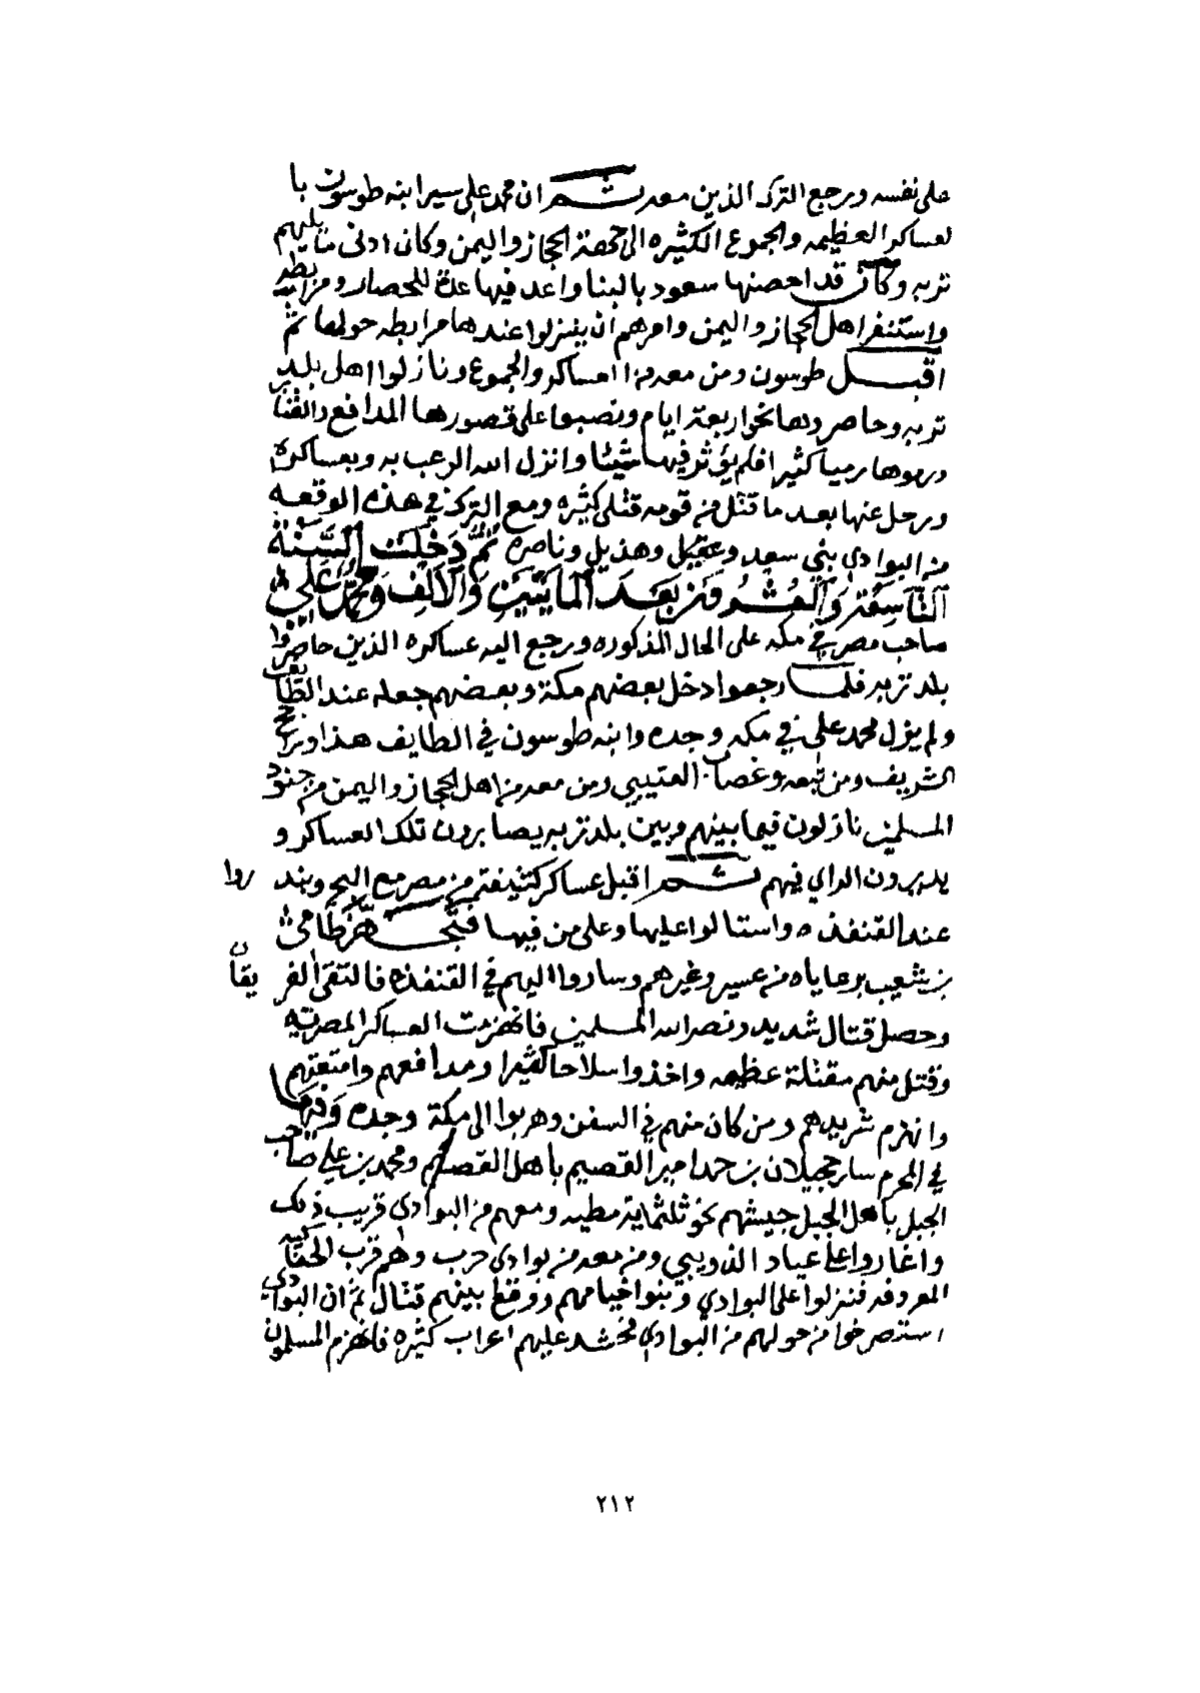 على نفسه ورجع الترك الذين معه ثم ان محمد علي سير ابنه طوسون با
لعساكر العظيمه والجموع الكثيره الى جهة الحجاز واليمن وكان ادنى ما يليهم
تربه وكان قد احصنها سعود بالبنا واعد فيها عدة للحصار ومرابطه
واستنفر اهل الحجاز واليمن وامرهم ان ينزلوا عندها مرابطه حولها ثم
اقبل طوسون ومن معه من العساكر والجموع ونازلوا اهل بلد
تربه وحاصروها نحو اربعة ايام ونصبوا على قصورها المدافع والقنا
ورموها رميا كثيرا فلم يؤثر فيها شيئا وانزل الله الرعب به وبعساكره
ورحل عنها بعد ما قتل من قومه قتلى كثيره ومع الترك في هذه الوقعه
من البوادي بني سعد وعتيل وهذيل وناصره ثُمَّ دَخَلَت السَّنَةُ
التَّاسِعَة وَالْعشرُونَ بَعْدَ الْمَايَتَيْنِ وَالْأَلْفِ وَمُحَمَّد عَلِي
صاحب مصر في مكه على الحال المذكوره ورجع اليه عساكره الذين حاصروا
بلد تربه فلما رجعوا دخل بعضهم مكة وبعضهم جعله عند الطايف
ولم يزل محمد علي في مكه وجده وابنه طوسون في الطايف هذا وراجح
الشريف ومن تبعه وغصاب العتيبي ومن معه من اهل الحجاز واليمن من جنود
المسلمين نازلون فيما بينهم وبين بلد تربه يصابرون تلك العساكر و
يديرون الراي فيهم ثم اقبل عساكر كثيفة من مصر مع البحر وبندروا
عند القنفذه واستالوا عليها وعلى من فيها فتجهز طامي
بن شعيب برعاياه من عسير وغيرهم وساروا اليهم في القنفذه فالتقى الفريقان
وحصل قتال شديد ونصر الله المسلمين فانهزمت العساكر المصريه
وقتل منهم مقتلة عظيمه واخذوا سلاحا كثيرا ومدافعهم وامتعتهم
وانهزم شريدهم ومن كان منهم في السفن وهربوا الى مكة وجده وَفيها
في المحرم سار حجيلان بن حمد امير القصيم باهل القصيم ومحمد بن علي صاحب
الجبل باهل الجبل جيشهم نحو ثلثماية مطيه ومعهم من البوادي قريب ذلك
واغاروا على عياد الذويبي ومن معه من بوادي حرب وهم قرب الحناكيه
المعروفه فنزلوا على البوادي وبنوا خيامهم ووقع بينهم قتال ثم ان البوادي
استصرخوا من حولهم من البوادي فحشد عليهم اعراب كثيره فانهزم المسلمون
٢١٢